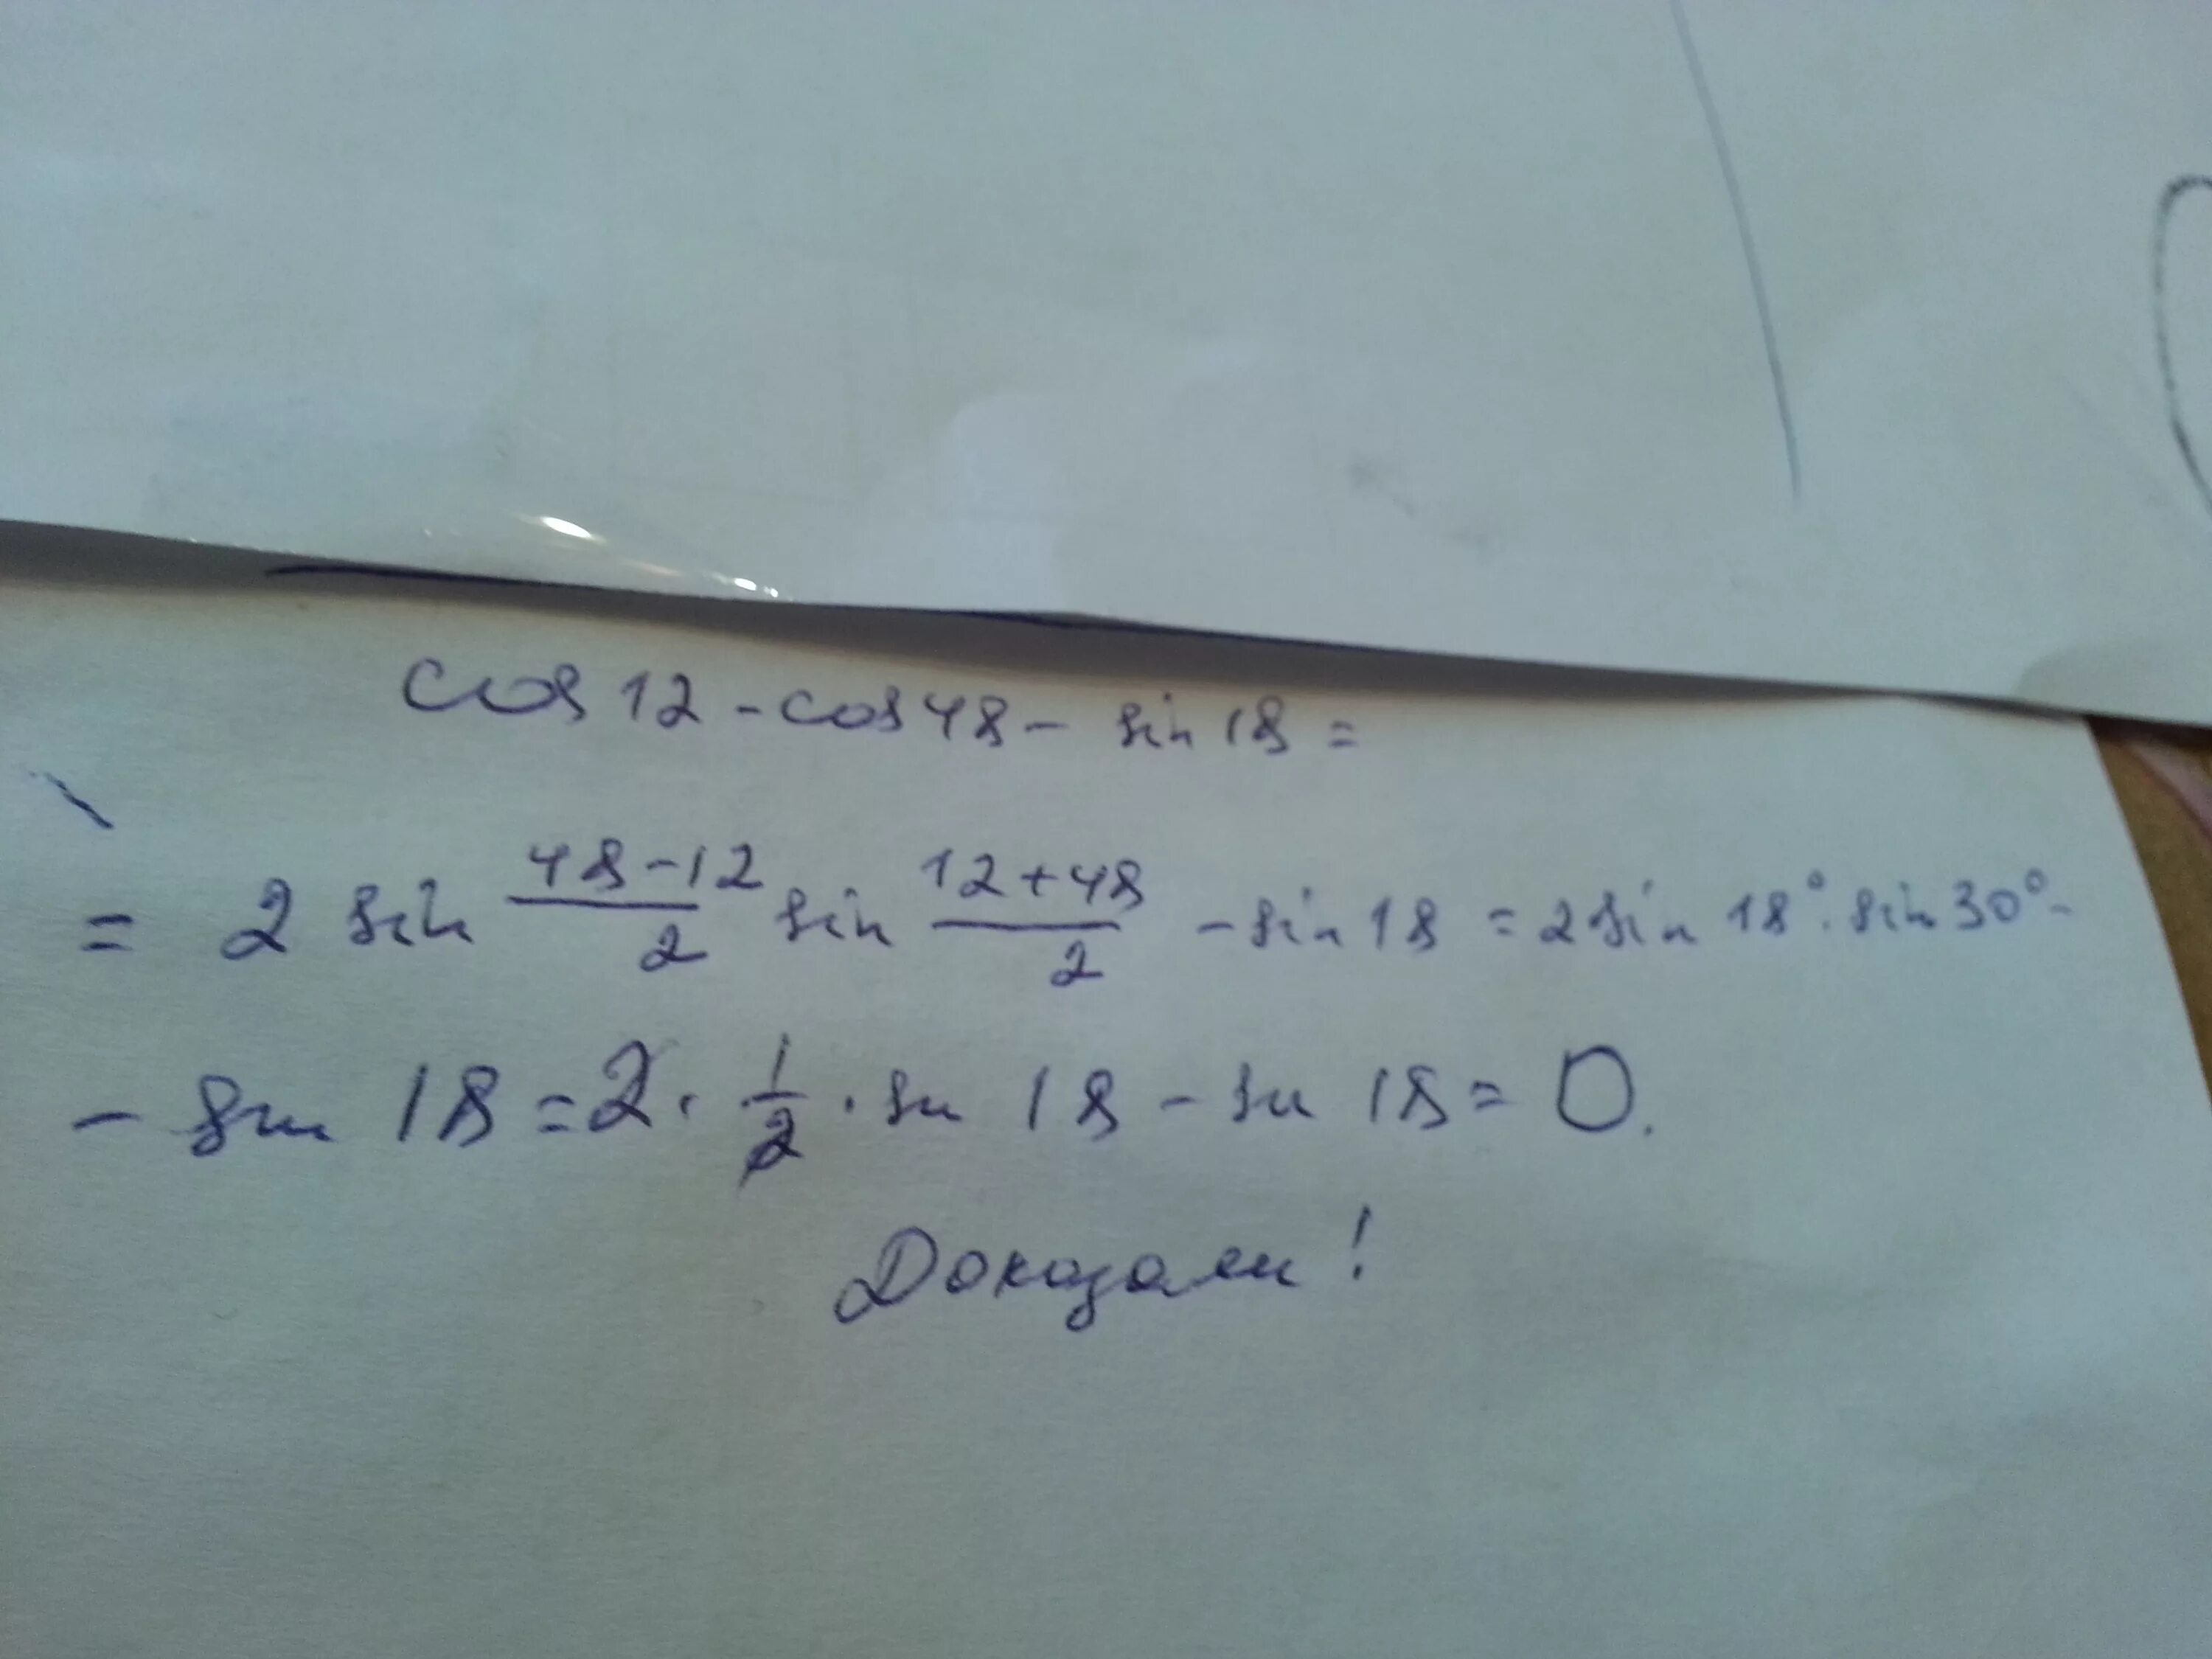 cos 12 - cos 48 - sin 18 =
= 2 sin \frac{48-12}{2} sin \frac{12+48}{2} - sin 18 = 2 sin 18° · sin 30° -
- sin 18 = 2 · \frac{1}{2} · sin 18 - sin 18 = 0.
Доказали!